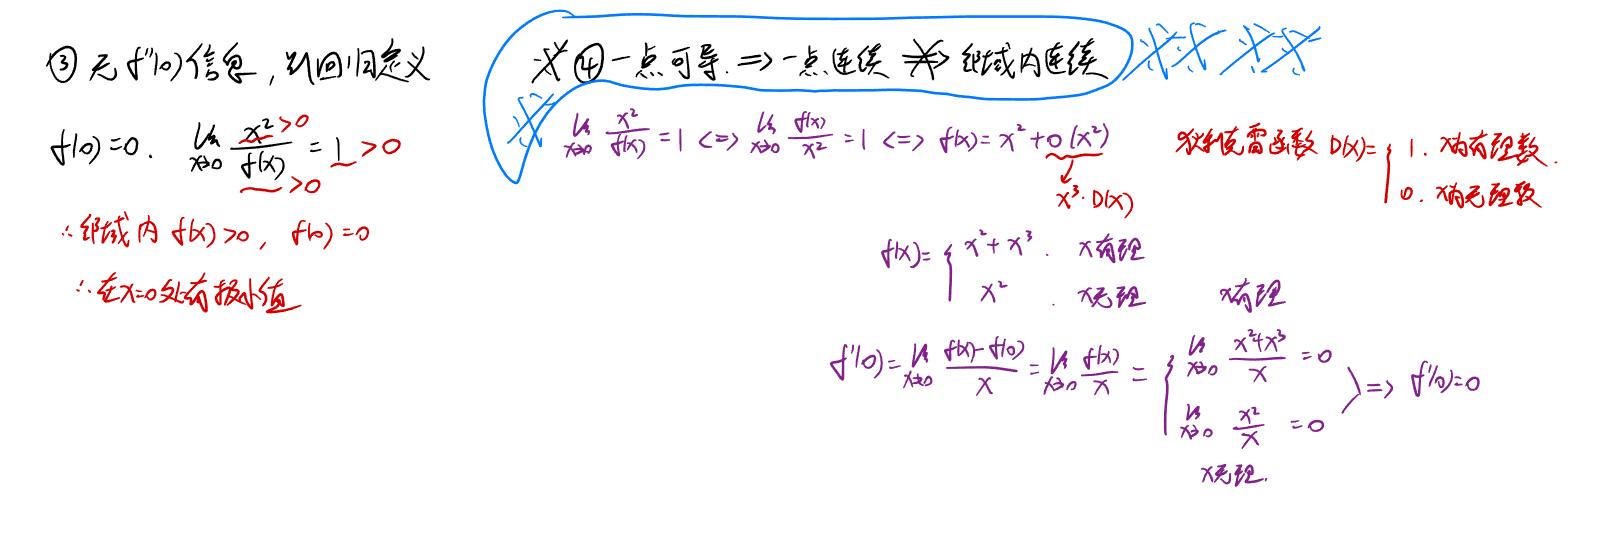 ③ 无f''(0)信息, 则回归定义
f(0)=0. lim x→0 x²/f(x) = 1 >0
>0
>0
∴邻域内 f(x)>0, f(0)=0
∴在x=0处有极小值
※ ④ 一点可导 => 一点连续 ≠> 邻域内连续 ※※ ※※
※ lim x→0 x²/f(x) = 1 <=> lim x→0 f(x)/x² = 1 <=> f(x)= x²+o(x²)
x³·D(x)
狄利克雷函数 D(x)= { 1. x为有理数.
0. x为无理数
f(x)= { x²+x³ . x有理
x² . x无理
x有理
f'(0)= lim x→0 (f(x)-f(0))/x = lim x→0 f(x)/x = { lim x→0 (x²+x³)/x = 0
lim x→0 x²/x = 0
} => f'(0)=0
x无理.